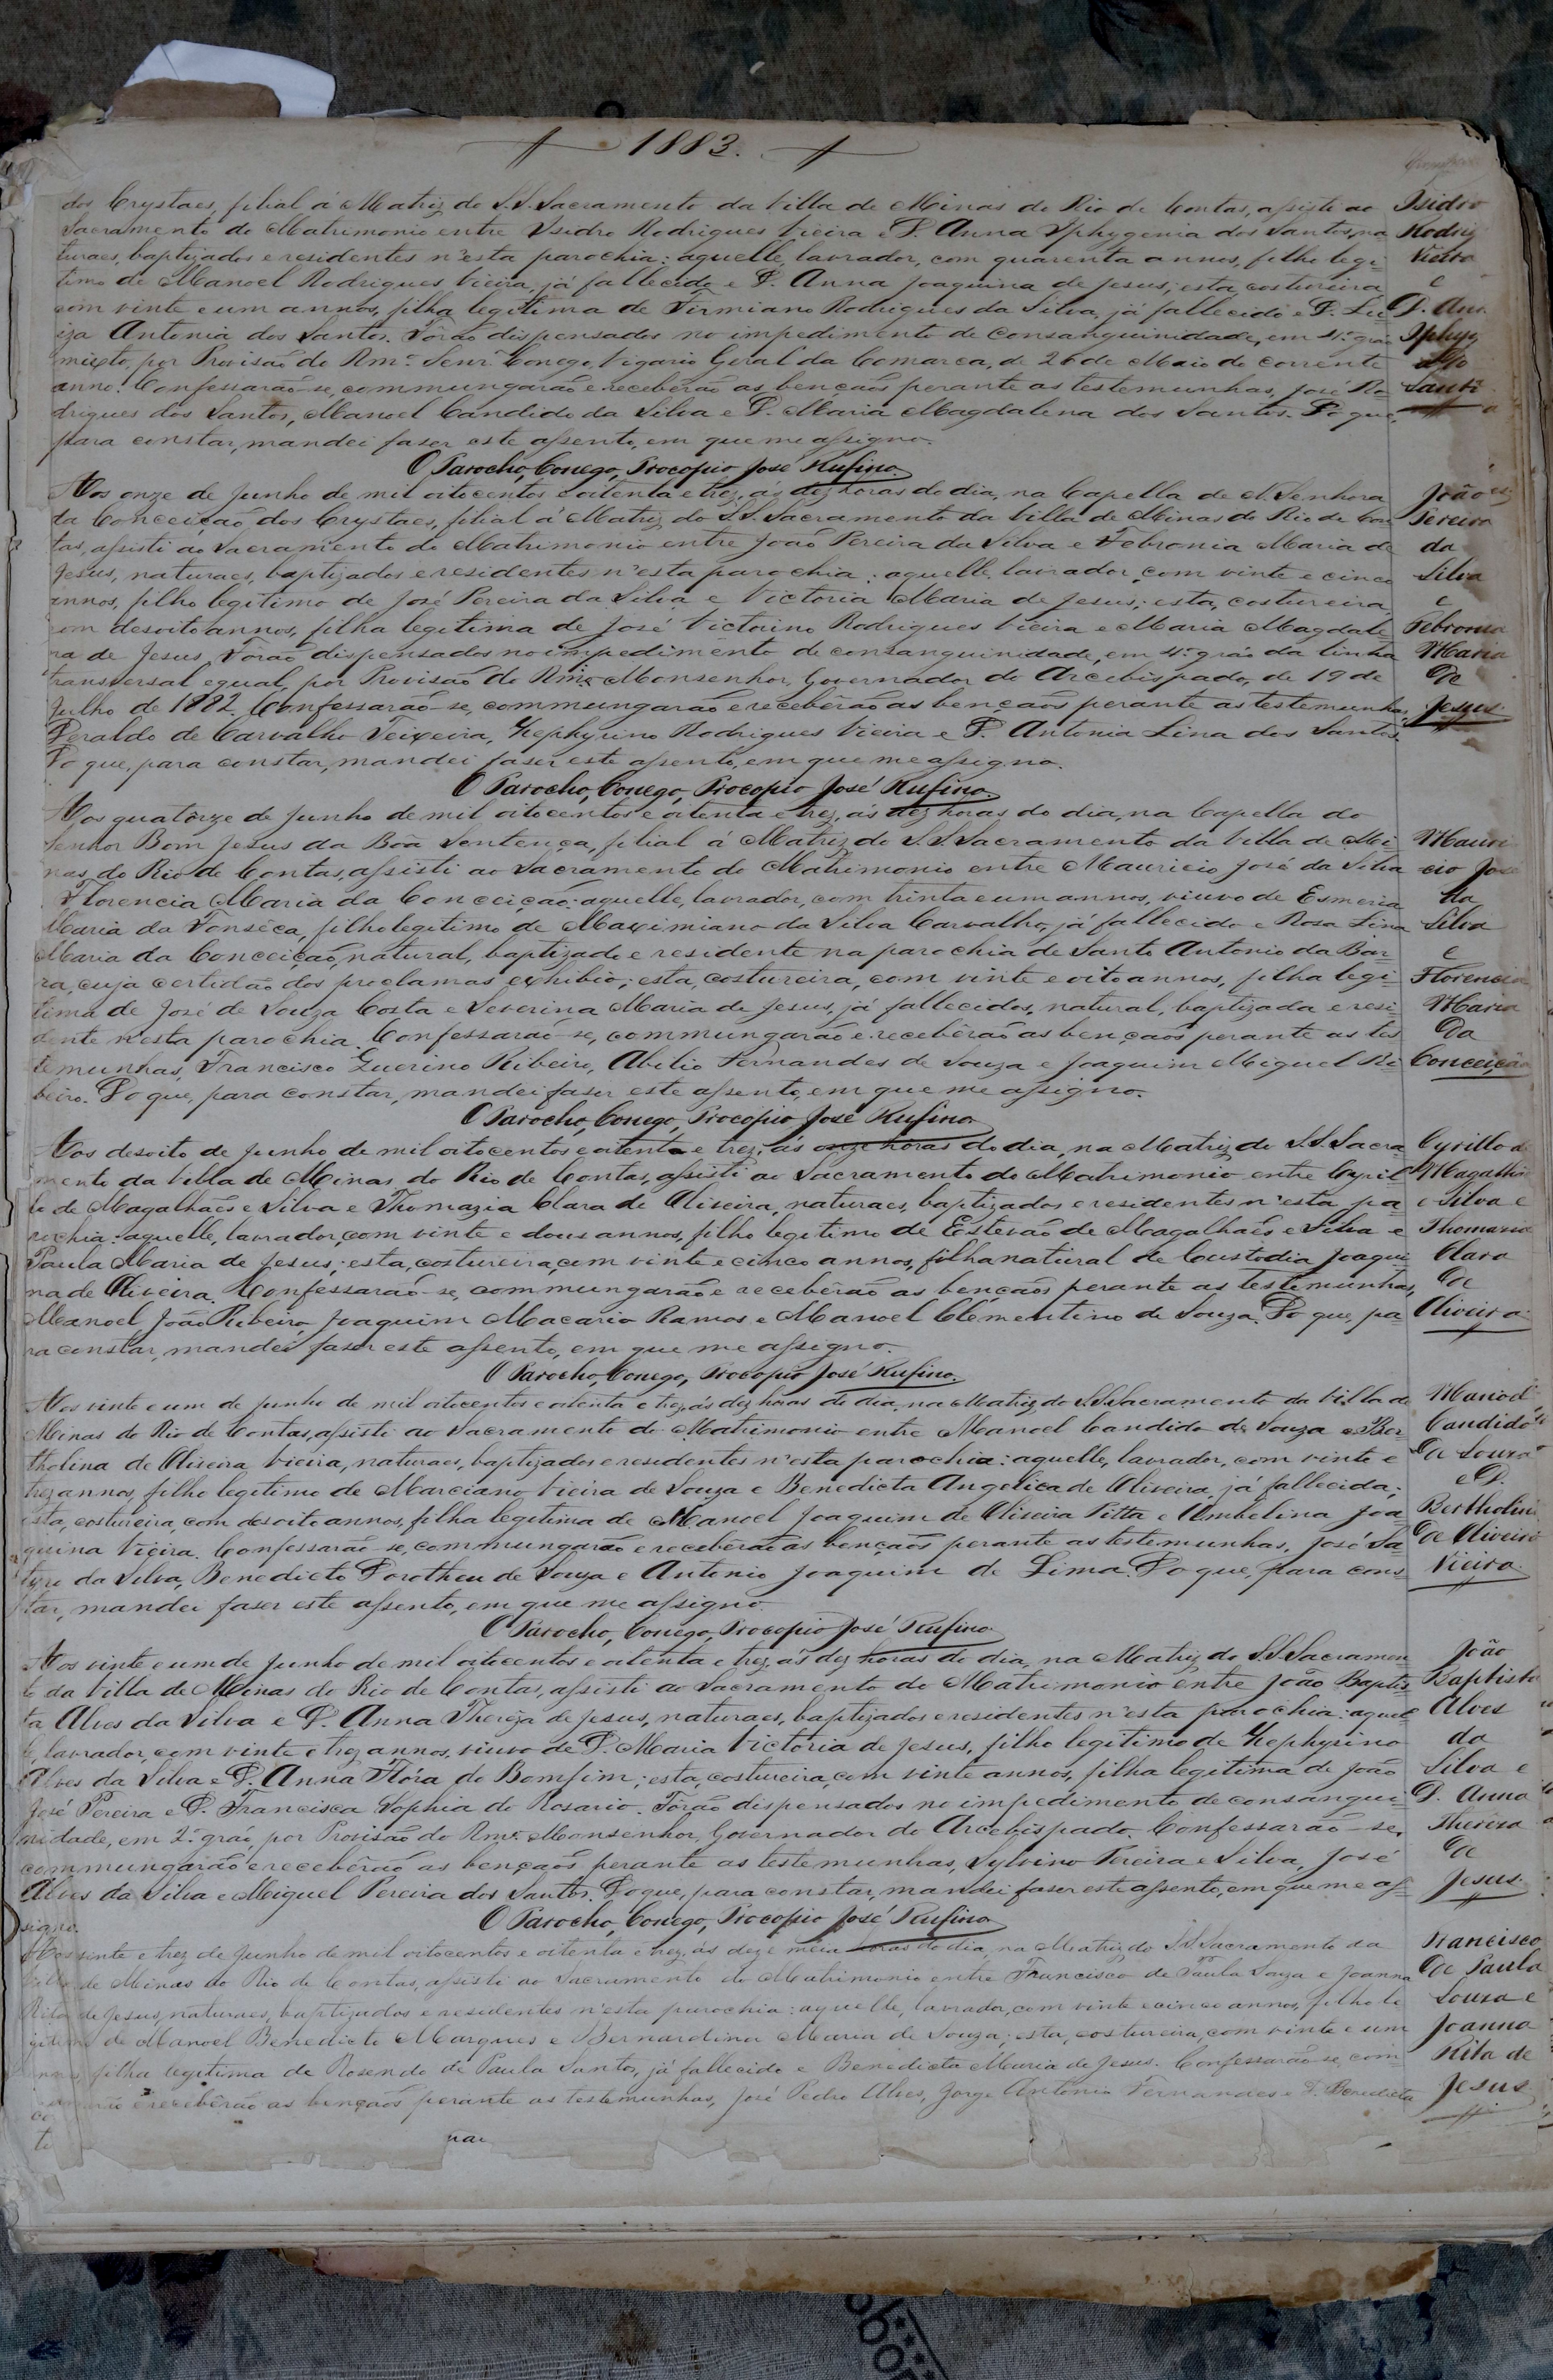 1883.
dos Crystaes, filial á Matriz do S.S. Sacramento da Villa de Minas do Rio de Contas, assisti ao
Sacramento do Matrimonio entre Isidro Rodrigues Vieira e D. Anna Iphygenia dos Santos, na-
turaes, baptizados e residentes n'esta parochia: aquelle, lavrador, com quarenta annos, filho legi-
timo de Manoel Rodrigues Vieira, já fallecido e D. Anna Joaquina de Jesus; esta, costureira
com vinte e um annos, filha legitima de Firmiano Rodrigues da Silva, já fallecido e D. Lu-
iza Antonia dos Santos. Fôrão dispensados no impedimento de consanguinidade, em 4.º grao
mixto, por Provisão do Rmº. Senr. Conego Vigario Geral da Comarca, de 26 de Maio do corrente
anno. Confessarão-se, commungarão e receberão as bençãos perante as testemunhas, José Ro-
drigues dos Santos, Manoel Candido da Silva e D. Maria Magdalena dos Santos. Do que,
para constar, mandei faser este assento, em que me assigno.
O Parocho, Conego, Procopio José Rufino.
Isidro
Rodrig
Vieira
e
D. Ann
Iphyg
dos
Sant
Aos onze de Junho de mil oitocentos e oitenta e trez, ás dez horas do dia, na Capella de N. Senhora
da Conceição dos Crystaes, filial á Matriz do S.S. Sacramento da Villa de Minas do Rio de Con-
tas, assisti ao Sacramento do Matrimonio entre João Pereira da Silva e Febronia Maria de
Jesus, naturaes, baptizados e residentes n'esta parochia: aquelle, lavrador, com vinte e cinco
annos, filho legitimo de José Pereira da Silva e Victoria Maria de Jesus; esta, costureira,
com desoito annos, filha legitima de José Victorino Rodrigues Vieira e Maria Magdale-
na de Jesus. Fôrão dispensados no impedimento de consanguinidade, em 4.º grão da linha
transversal egual, por Provisão do Rmº. Monsenhor, Governador do Arcebispado, de 19 de
Julho de 1882. Confessarão-se, commungarão e receberão as bençãos perante as testemunhas,
Deraldo de Carvalho Teixeira, Zephyrino Rodrigues Vieira e D. Antonia Lina dos Santos.
Do que, para constar, mandei faser este assento, em que me assigno.
O Parocho, Conego, Procopio José Rufino.
João
Pereira
da
Silva
e
Febronia
Maria
de
Jesus.
Aos quatorze de Junho de mil oitocentos e oitenta e trez, ás dez horas do dia, na Capella do
Senhor Bom Jesus da Bôa Sentença, filial á Matriz do S.S. Sacramento da Villa de Mi-
nas do Rio de Contas, assisti ao Sacramento do Matrimonio entre Mauricio José da Silva
e Florencia Maria da Conceição: aquelle, lavrador, com trinta e um annos, viuvo de Esmeria
Maria da Fonsêca, filho legitimo de Maximiano da Silva Carvalho, já fallecido e Rosa Lina
Maria da Conceição, natural, baptizado e residente na parochia de Santo Antonio da Bar-
ra, cuja certidão dos proclamas exhibio; esta, costureira, com vinte e oito annos, filha legi-
tima de José de Souza Costa e Severina Maria de Jesus, já fallecidos, natural, baptizada e resi-
dente n'esta parochia. Confessarão-se, commungarão e receberão as bençãos perante as tes-
temunhas, Francisco Querino Ribeiro, Abilio Fernandes de Souza e Joaquim Miguel Ri-
beiro. Do que, para constar, mandei faser este assento, em que me assigno.
O Parocho, Conego, Procopio José Rufino
Mauri
cio José
da
Silva
e
Florencia
Maria
da
Conceição
Aos desoito de Junho de mil oitocentos e oitenta e trez, ás onze horas do dia, na Matriz do S.S. Sacra-
mento da Villa de Minas do Rio de Contas, assisti ao Sacramento do Matrimonio entre Cyril-
lo de Magalhães e Silva e Thomazia Clara de Oliveira, naturaes, baptizados e residentes n'esta pa-
rochia: aquelle, lavrador, com vinte e dous annos, filho legitimo de Estevão de Magalhães e Silva e
Paula Maria de Jesus; esta, costureira, com vinte e cinco annos, filha natural de Custodia Joaqui-
na de Oliveira. Confessarão-se, commungarão e receberão as bençãos perante as testemunhas,
Manoel João Ribeiro, Joaquim Macario Ramos e Manoel Clementino de Souza. Do que, pa-
ra constar, mandei faser este assento, em que me assigno.
O Parocho, Conego, Procopio José Rufino.
Cyrillo de
Magalhã
e Silva e
Thomazia
Clara
de
Oliveira.
Aos vinte e um de Junho de mil oitocentos e oitenta e trez, ás dez horas do dia, na Matriz do S.S. Sacramento da Villa de
Minas do Rio de Contas, assisti ao Sacramento do Matrimonio entre Manoel Candido de Souza e Ber-
tholina de Oliveira Vieira, naturaes, baptizados e residentes n'esta parochia: aquelle, lavrador, com vinte e
trez annos, filho legitimo de Marciano Vieira de Souza e Benedicta Angelica de Oliveira, já fallecida;
esta, costureira, com desoito annos, filha legitima de Manoel Joaquim de Oliveira Pitta e Umbelina Joa-
quina Vieira. Confessarão-se, commungarão e receberão as bençãos perante as testemunhas, José Sa-
tyro da Silva, Benedicto Dorotheu de Souza e Antonio Joaquim de Lima. Do que, para cons-
tar, mandei faser este assento, em que me assigno.
O Parocho, Conego, Procopio José Rufino
Manoel
Candido
de Souza
e D.
Bertholina
de Oliveira
Vieira.
Aos vinte e um de Junho de mil oitocentos e oitenta e trez, ás dez horas do dia, na Matriz do S.S. Sacramen-
to da Villa de Minas do Rio de Contas, assisti ao Sacramento do Matrimonio entre João Baptis-
ta Alves da Silva e D. Anna Thereza de Jesus, naturaes, baptizados e residentes n'esta parochia: aquel-
le, lavrador, com vinte e trez annos, viuvo de D. Maria Victoria de Jesus, filho legitimo de Zephyrino
Alves da Silva e D. Anna Flóra do Bomfim; esta, costureira, com vinte annos, filha legitima de João
José Pereira e D. Francisca Sophia do Rosario. Fôrão dispensados no impedimento de consangui-
nidade, em 2.º gráo, por Provisão do Rmº. Monsenhor, Governador do Arcebispado. Confessarão-se,
commungarão e receberão as bençãos perante as testemunhas, Sylvino Pereira e Silva, José
Alves da Silva e Miguel Pereira dos Santos. Do que, para constar, mandei faser este assento, em que me as-
signo.
O Parocho, Conego, Procopio José Rufino
João
Baptista
Alves
da
Silva e
D. Anna
Thereza
de
Jesus.
Aos vinte e trez de Junho de mil oitocentos e oitenta e trez, ás dez e meia horas do dia, na Matriz do S.S. Sacramento da
Villa de Minas do Rio de Contas, assisti ao Sacramento do Matrimonio entre Francisco de Paula Souza e Joanna
Rita de Jesus, naturaes, baptizados e residentes n'esta parochia: aquelle, lavrador, com vinte e cinco annos, filho le-
gitimo de Manoel Benedicto Marques e Bernardina Maria de Souza; esta, costureira, com vinte e um
annos, filha legitima de Rosendo de Paula Santos, já fallecido e Benedicta Maria de Jesus. Confessarão-se, com-
mungarão e receberão as bençãos perante as testemunhas, José Pedro Alves, Jorge Antonio Fernandes e D. Benedicta
Francisco
de Paula
Souza e
Joanna
Rita de
Jesus